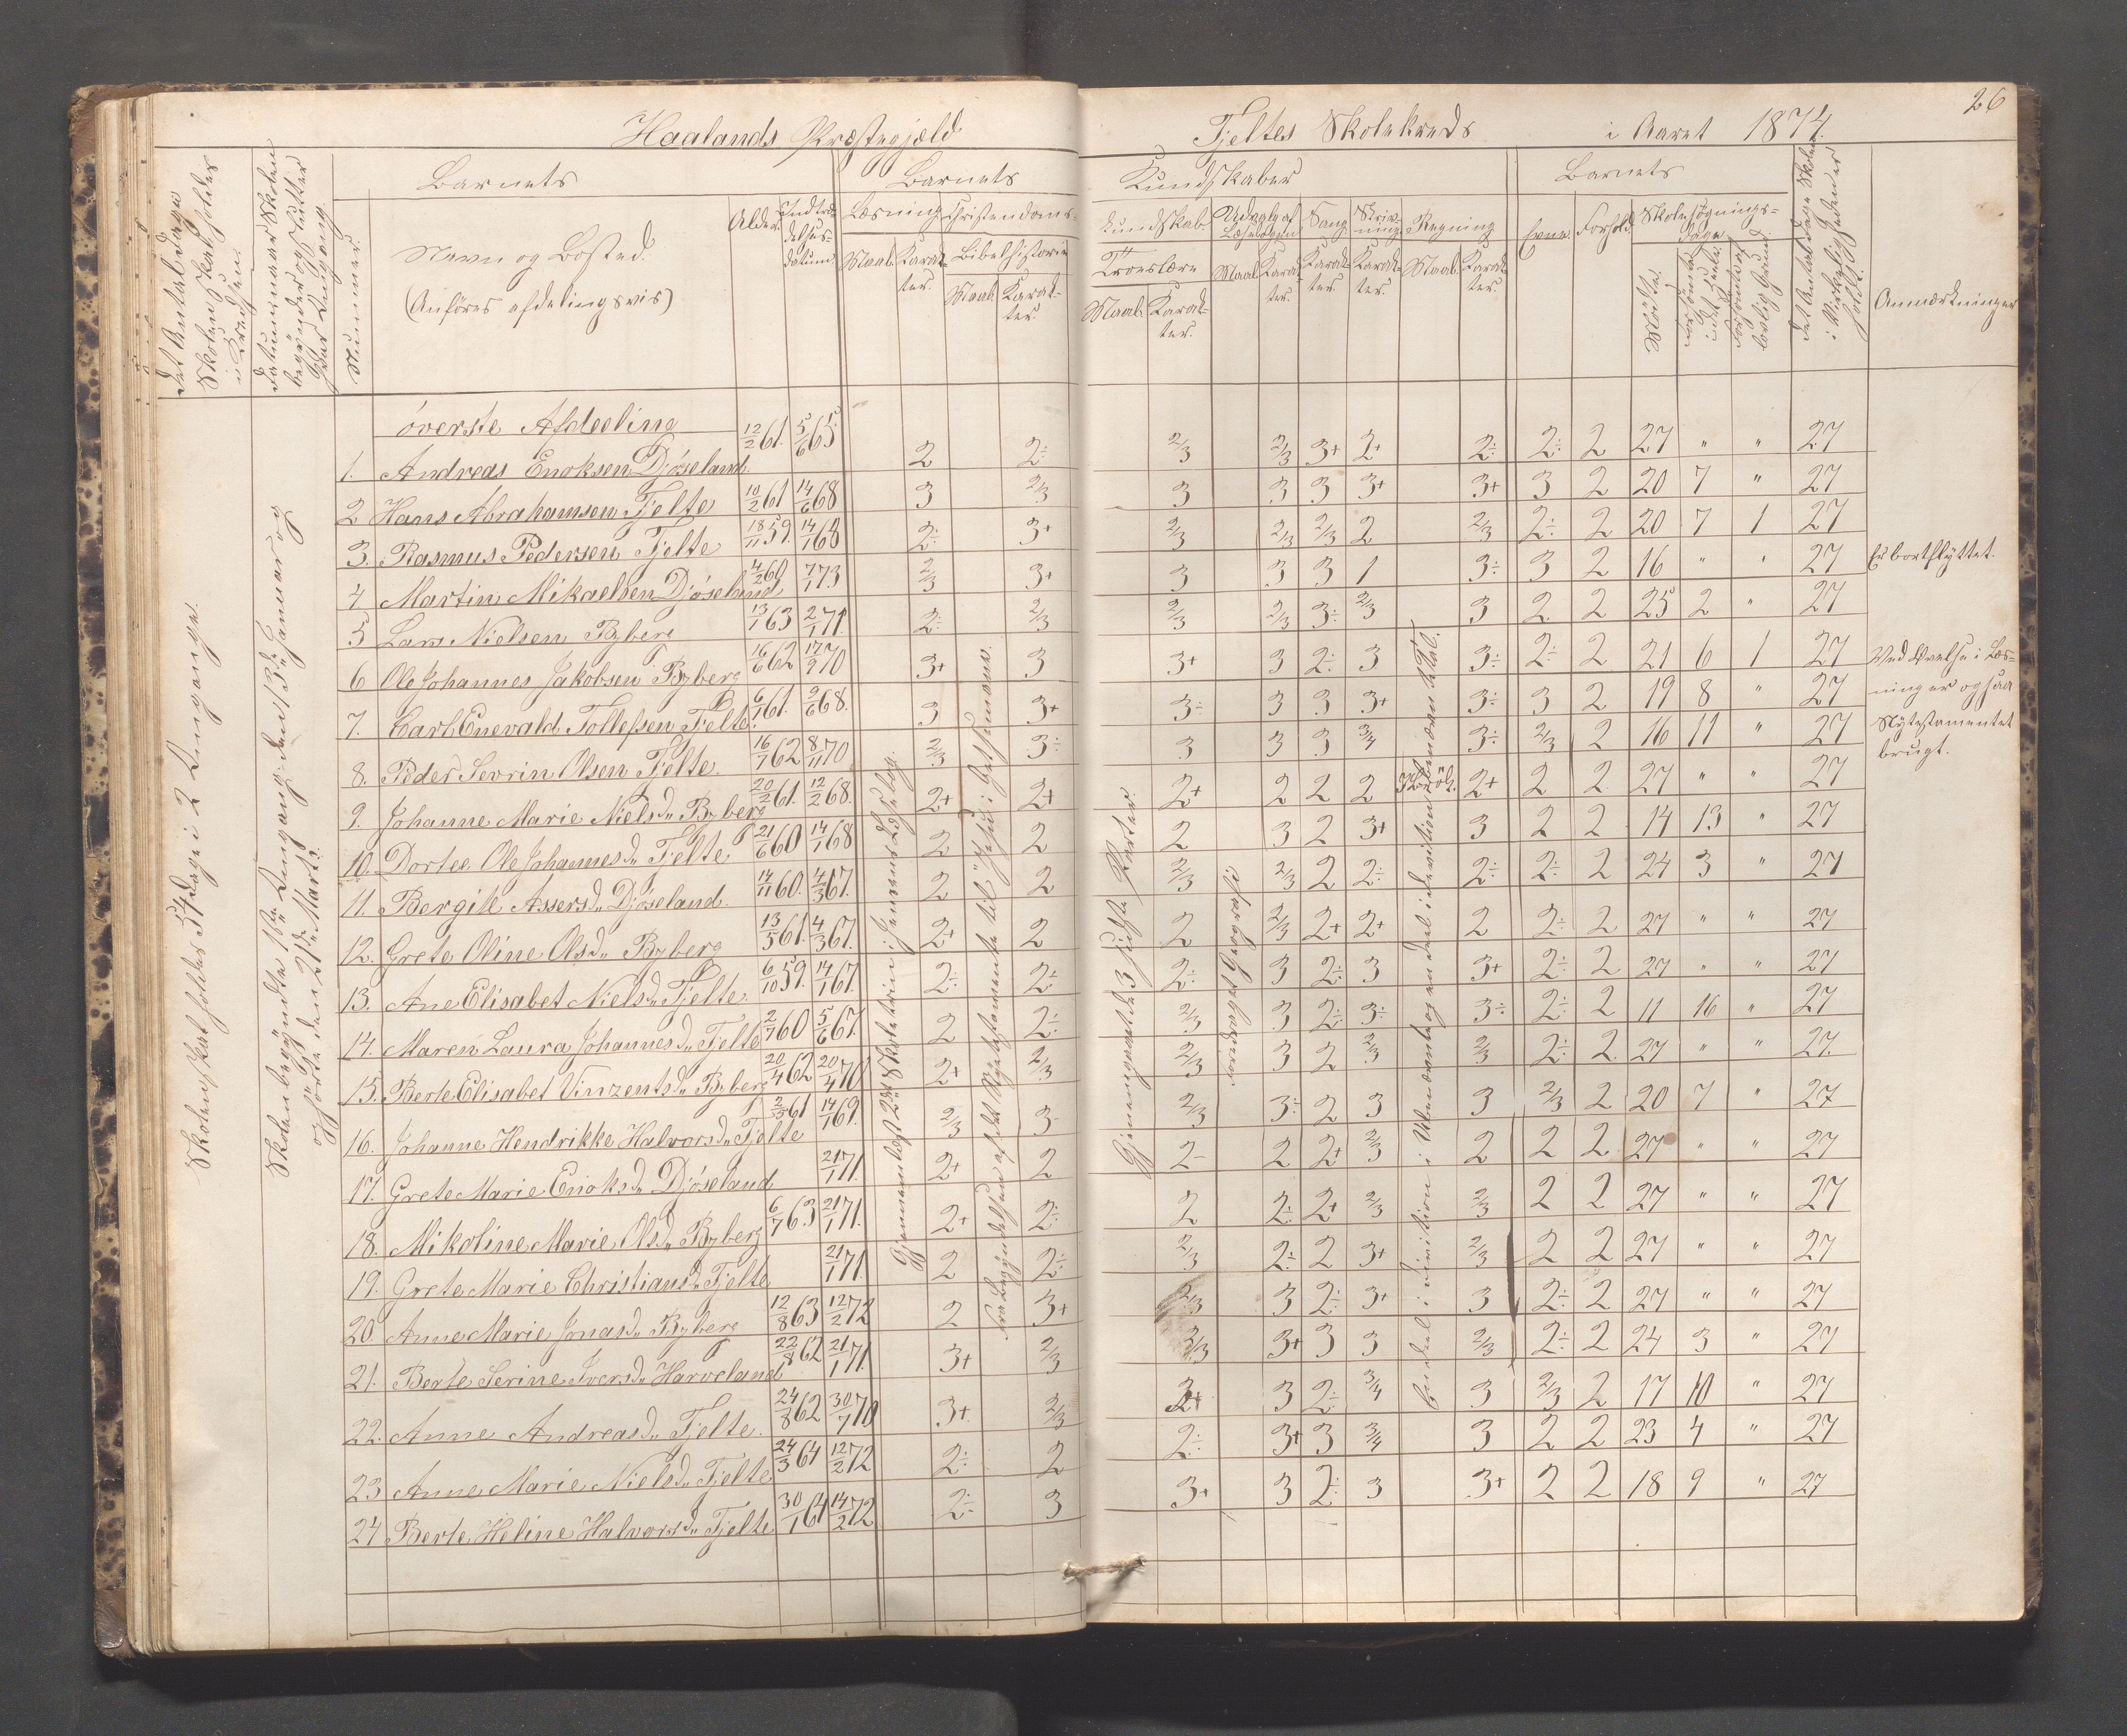 26
Haalands Præstegjeld Tjeltes Skolekreds i Aaret 1874.
Barnets Barnets Kundskaber Barnets
Det Antal Dage Skolen skal holdes i Kredsen.
Datum naar Skolen begynder og slutter hver Omgang.
Nummer.
Navn og Bosted.
(Anføres afdelingsvis)
Alder. Indtrædelses-datum.
Læsning Christendoms- kundskab Udvalg af Læsebogen Sang Skrivning Regning Evne. Forhold. Skolesøgnings-Dage
Maal. Karakter. Bibelhistorie Troeslære
Maal. Karakter. Maal. Karakter. Maal. Karakter. Karakter Karakter. Maal. Karakter.
Mødte. forsømte i det Hele. forsømte af lovlig Grund.
Det Antal Dage Skolen i Virkeligheden er holdt.
Anmærkninger
øverste Afdeeling
1. Andreas Enoksen Djøseland. 12/2 61. 5/6 65 2 2÷ 2/3 2/3 3+ 2+ 2÷ 2÷ 2 27 " " 27
2 Hans Abrahamsen Tjelte 10/2 61 14/6 68 3 2/3 3 3 3 3+ 3+ 3 2 20 7 " 27
3. Rasmus Pedersen Tjelte 18/11 59. 14/1 68 2÷ 3+ 2/3 2/3 2/3 2 2/3 2÷ 2 20 7 1 27
4 Martin Mikaelsen Djøseland 4/2 60 7/1 73 2/3 3+ 3 3 3 1 3÷ 3 2 16 " " 27 Er bortflyttet.
5 Lars Nielsen Byberg 13/1 63 2/1 71. 2÷ 2/3 2/3 2/3 3÷ 2/3 3 2 2 25 2 " 27
6 Ole Johannes Jakobsen Byberg 16/6 62 17/9 70 3+ 3 3+ 3 2÷ 3 3÷ 2÷ 2 21 6 1 27 Ved Øvelse i Læs-
7. Carl Enevald Tollefsen Tjelte. 6/1 61. 9/6 68. 3 3+ 3÷ 3 3 3+ 3÷ 3 2 19 8 " 27 ning er ogsaa
8. Peder Sevrin Olsen Tjelte. 16/7 62 8/11 70 2/3 3÷ 3 3 3 3/4 3÷ 2/3 2 16 11 " 27 Nytestamentet
brugt.
9. Johanne Marie Nielsd. Byberg 20/2 61. 12/2 68. 2+ 2+ 2+ 2 2 2 2+ 2 2 27 " " 27
10. Dortea Ole Johannesd. Tjelte 21/6 60 14/1 68 2 2 2 3 2 3+ 3 2 2 14 13 " 27
11. Bergitt Assersd. Djøseland. 14/11 60. 4/3 67. 2 2 2/3 2/3 2 2÷ 2÷ 2÷ 2 24 3 " 27
12. Grete Oline Olsd. Byberg 13/5 61. 4/3 67. 2+ 2 2 2/3 2+ 2+ 2 2÷ 2 27 " " 27
13. Ane Elisabet Nielsd. Tjelte. 6/10 59. 14/1 67. 2÷ 2÷ 2÷ 3 2÷ 3 3+ 2÷ 2 27 " " 27
14. Maren Laura Johannesd. Tjelte 2/7 60 5/6 67. 2 2÷ 2/3 3 2÷ 3÷ 3÷ 2÷ 2 11 16 " 27
15. Berte Elisabet Vinzentsd. Byberg 20/4 62 20/4 70 2+ 2/3 2/3 3 2 2/3 2/3 2÷ 2 27 " " 27.
16. Johanne Hendrikke Halvorsd. Tjelte 2/5 61 14/1 69. 2/3 3 2/3 3÷ 2 3 3 2/3 2 20 7 " 27
17. Grete Marie Enoksd. Djøseland 21/1 71. 2+ 2 2 2 2+ 2/3 2 2 2 27 " " 27
18. Mikoline Marie Olsd. Byberg 6/7 63 21/1 71. 2+ 2÷ 2 2÷ 2+ 2/3 2/3 2 2 27 " " 27
19. Grete Marie Christiansd. Tjelte 21/1 71. 2 2÷ 2/3 2÷ 2 3+ 2/3 2 2 27 " " 27
20 Anne Marie Jonasd. Byberg 12/8 63 12/2 72 2 3+ 2/3 3 2÷ 3+ 3 2÷ 2 27 " " 27
21. Berte Serine Iversd. Harveland 22/8 62 21/1 71. 3+ 2/3 2/3 3+ 3 3 2/3 2÷ 2 24 3 " 27
22. Anne Andreasd. Tjelte. 24/8 62 30/7 70 3+ 2/3 2+ 3 2÷ 3/4 3 2/3 2 17 10 " 27
23 Anne Marie Nielsd. Tjelte 24/3 64 12/2 72 2÷ 2 2÷ 3+ 3 3/4 3 2 2 23 4 " 27
24 Berte Heline Halvorsd. Tjelte 30/1 64 14/2 72 2÷ 3 3+ 3 2÷ 3 3+ 2 2 18 9 " 27
Skolen skal holdes 54 Dage i 2 Omgange.
Skolen begyndte 1ste Omgang den 13de Januar og
ophørte den 21de Marts.
Gjennemlæst 2det Skoletrin i Jensens Læsebog.
Fra Begyndelsen af det Nye testamente til "Jesus i Getsemane".
Gjennemgaaet de 3 sidste Parter.
En Deel i Division i Ubenævnte og en Deel i Addition i benævnte Tal.